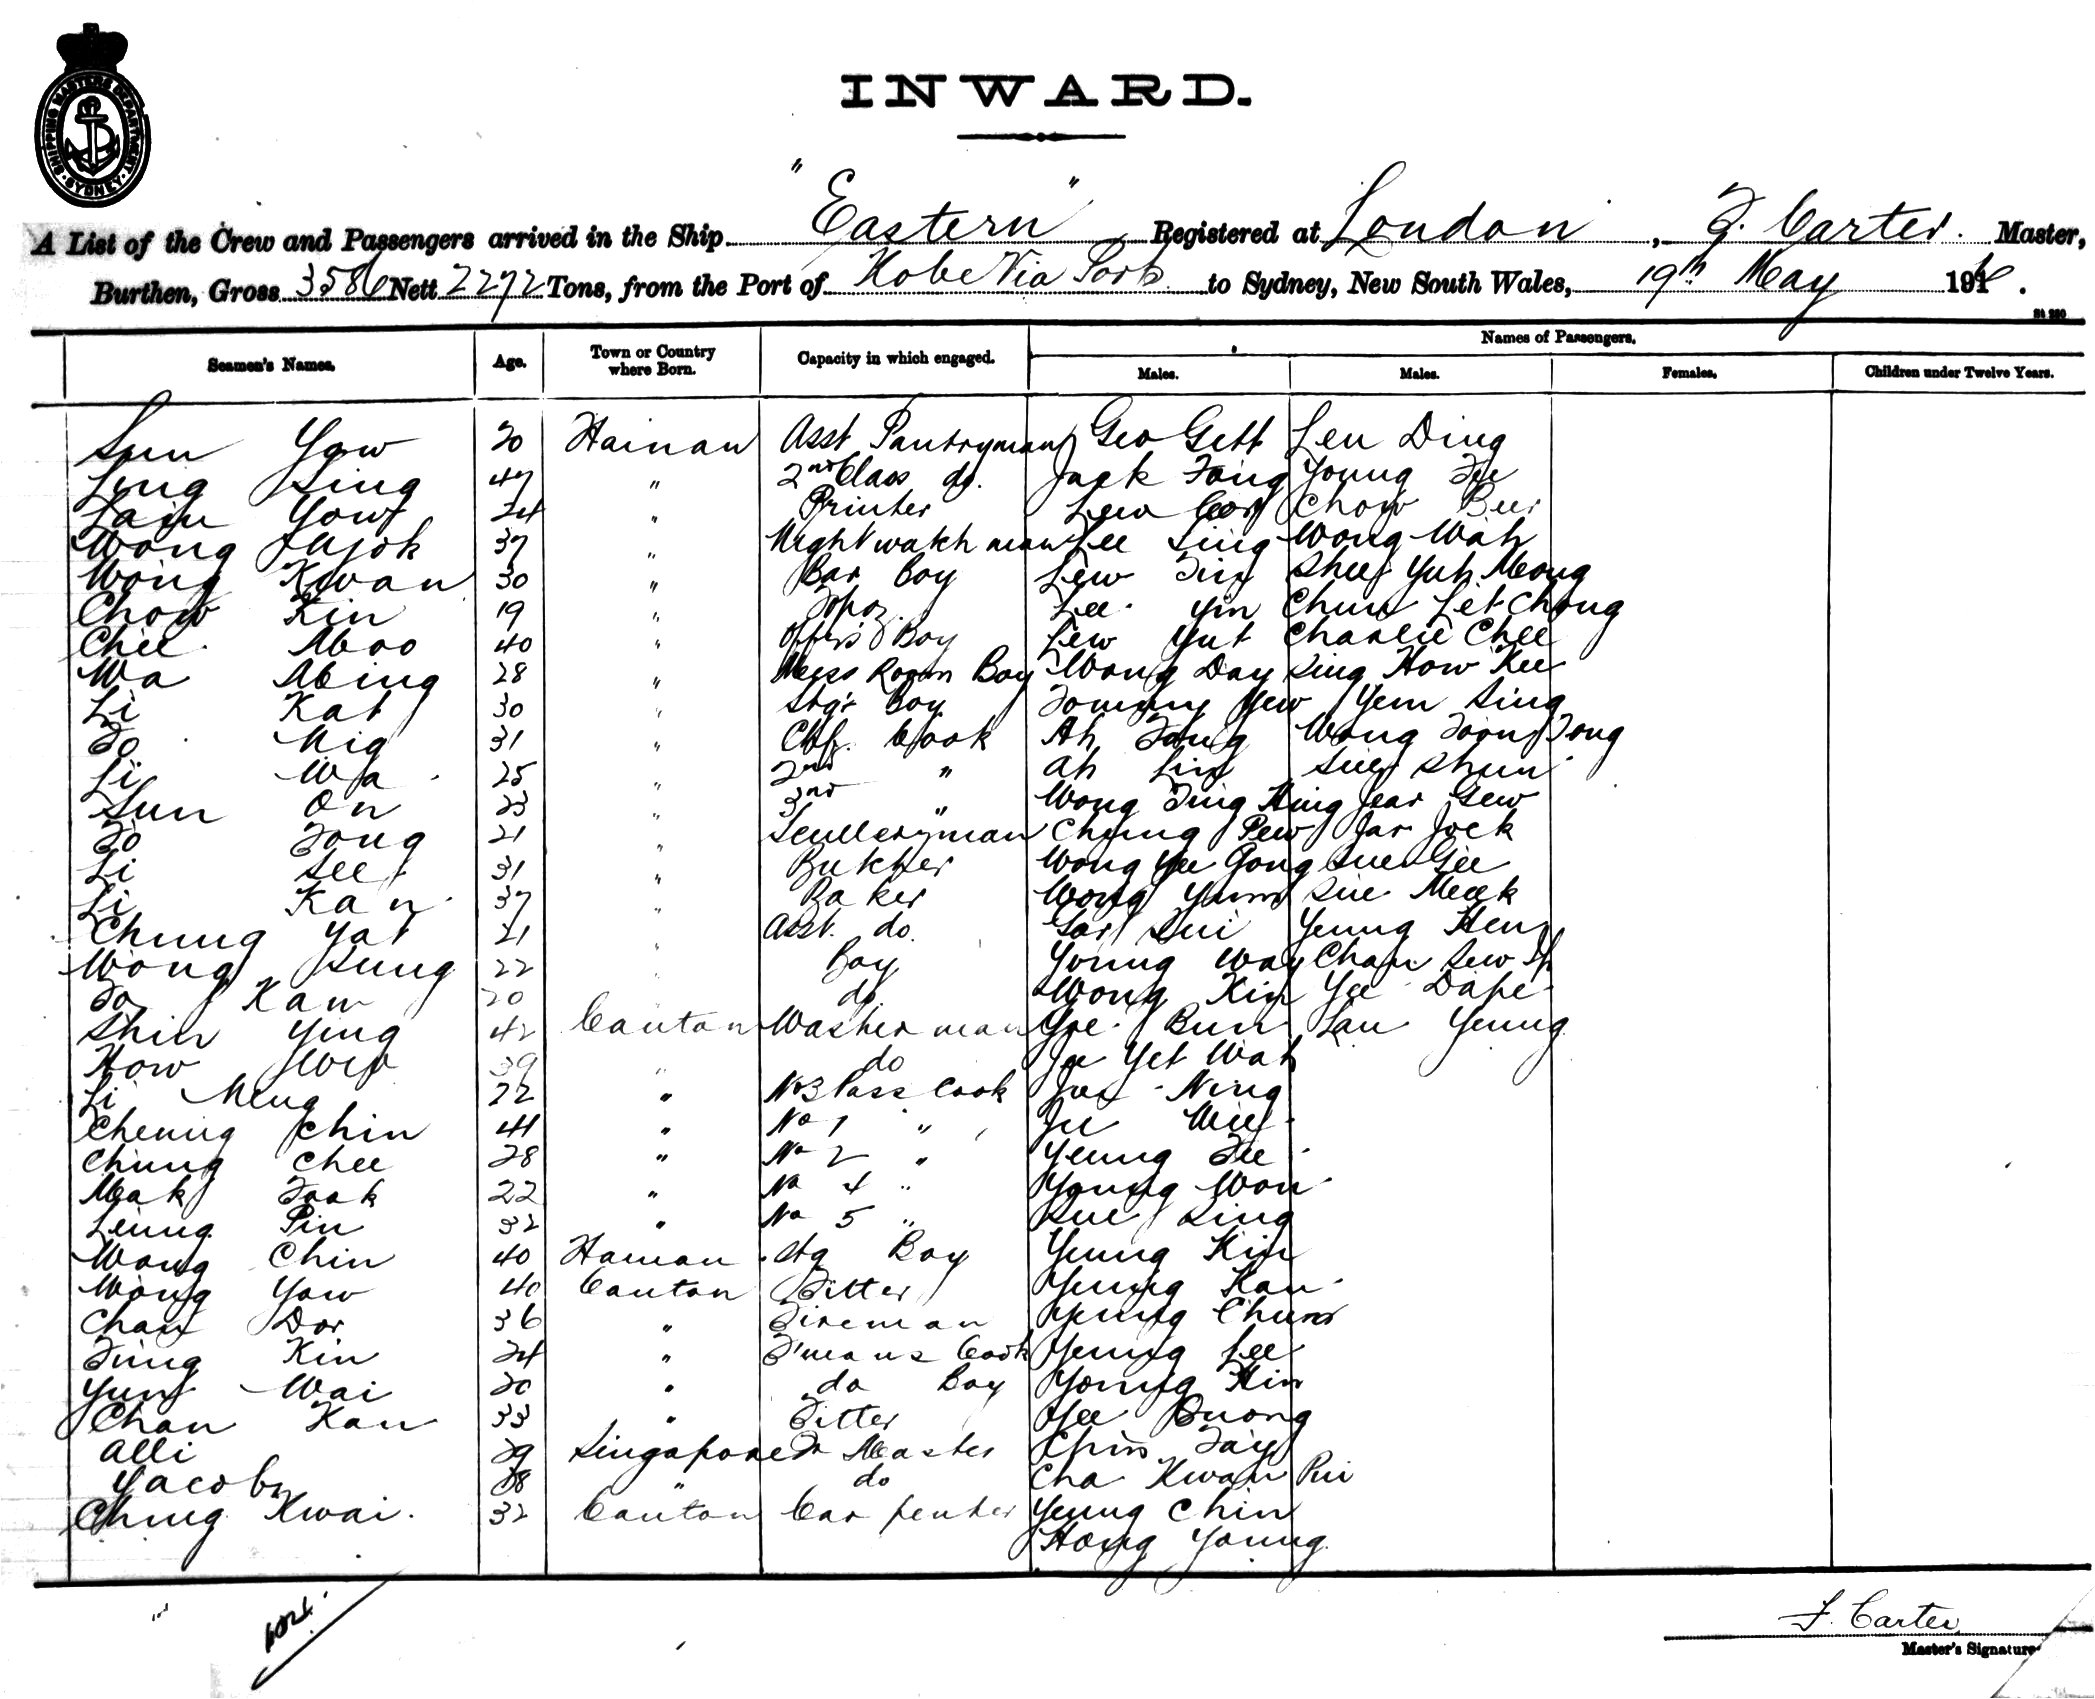 SHIPPING MASTERS DEPARTMENT SYDNEY
INWARD.
A List of the Crew and Passengers arrived in the Ship "Eastern" Registered at London, F. Carter. Master,
Burthen, Gross 3586 Nett 2272 Tons, from the Port of Kobe Via Ports to Sydney, New South Wales, 19th May 191
Names of Passengers.
Seamen's Names. Age. Town or Country where Born. Capacity in which engaged. Males. Males. Females. Children under Twelve Years.
Sun Yow 20 Hainan Asst Pantryman Geo Gett Leu Ding
Ling Sing 47 " 2nd Class do. Jack Fong Young
24 " Printer Lew Chow
Wong 37 " Night watchman Lee Sing Wong Wah
Wong Kwan 30 " Bar Boy Lew Yuk Mong
Chow Kin 19 " Lee Yin Chun Let Chong
Chee Moo 40 " Offrs Boy Lew Yut Charlie Chee
Wa Ming 28 " Mess Room Boy Wong Day Sing How Kee
Li Kat 30 " Stg's Boy Tommy Yew Yem Sing
Fo Mig 31 " Chf. Cook Ah Fong Wong Toong Tong
Li Wa 25 " 2nd " Ah Shun
Sun On 23 " 3rd " Wong Ting Hing Jear Gew
Fo Fong 21 " Sculleryman Chung Pew Jar Jock
Li See 31 " Butcher Wong Yee Gong Sue Gee
Li Kan 37 " Baker Wong Yum Sue Meek
Chung Yat 21 " Asst. do. Sui Yeung Hen
Wong Sung 22 " Boy Young Way Chan Sew
Fo Kam 20 do. Wong Kin Yee Dape
Shin Ying 42 Canton Washerman Yee Bun Lau Yeung
How Wep 39 " do Ju Yet Wah
Li Meng 22 " No 3 Pass Cook Ning
Cheung Chin 41 " No 1 " Ju
Chung Chee 28 " No 2 " Yeung
Mak Fook 22 " No 4 " Young Won
Leung Pin 32 " No 5 " Sue Sing
Wong Chin 40 Hainan Stg Boy Yeung Kin
Wong Yow 40 Canton Fitter Yeung Kau
Chan Dor 36 " Fireman Yeung Chun
Fung Kin 24 " F'mans Cook Yeung Lee
Yun Wai 20 " do Boy Young Hin
Chan Kan 33 " Fitter Yee Quong
Alli 29 Singapore Master Chin Fay
Yacob 38 " do Cha Kwan Pui
Ching Kwai. 32 Canton Carpenter Yeung Chin
Hong Young.
F. Carter
Master's Signature